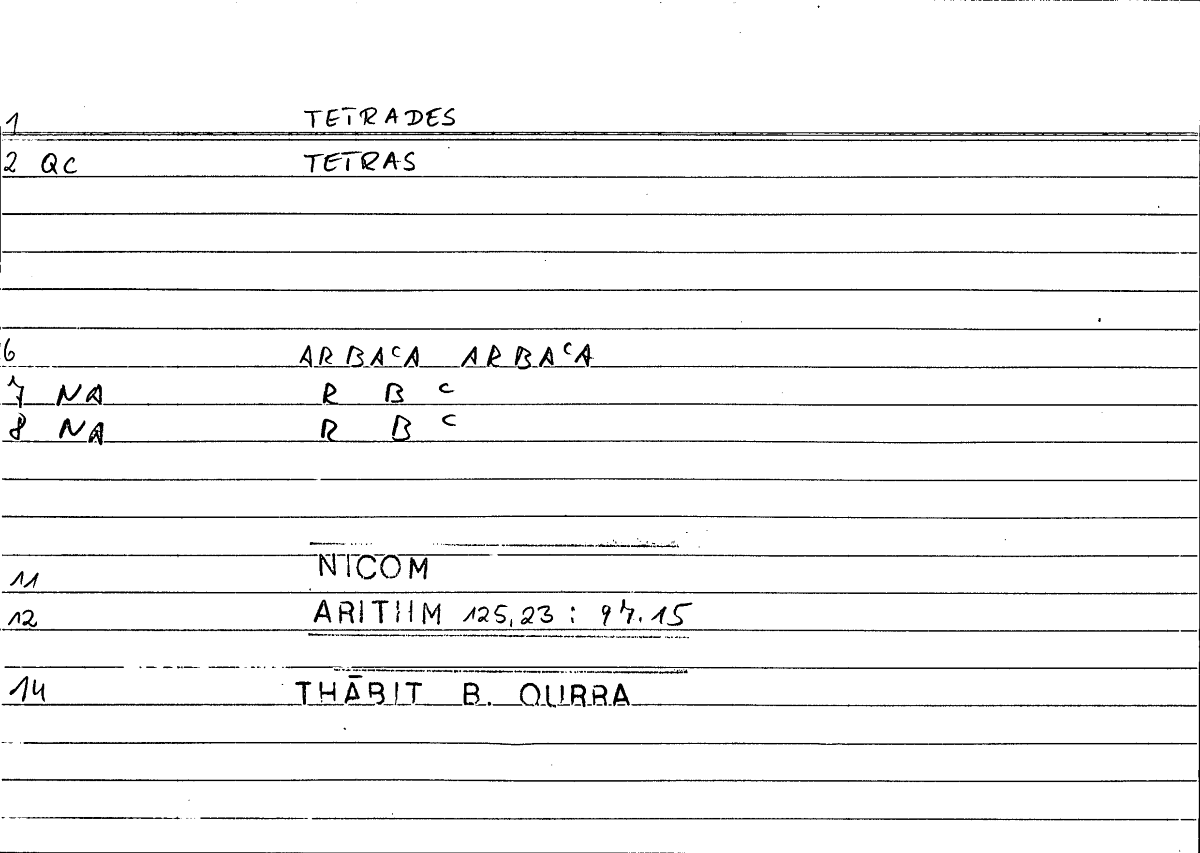 1 TETRADES
2 QC TETRAS
6 ARBAᶜA ARBAᶜA
7 NA R B ᶜ
8 NA R B ᶜ
11 NICOM
12 ARITHM 125,23 : 97.15
14 THĀBIT B. QURRA